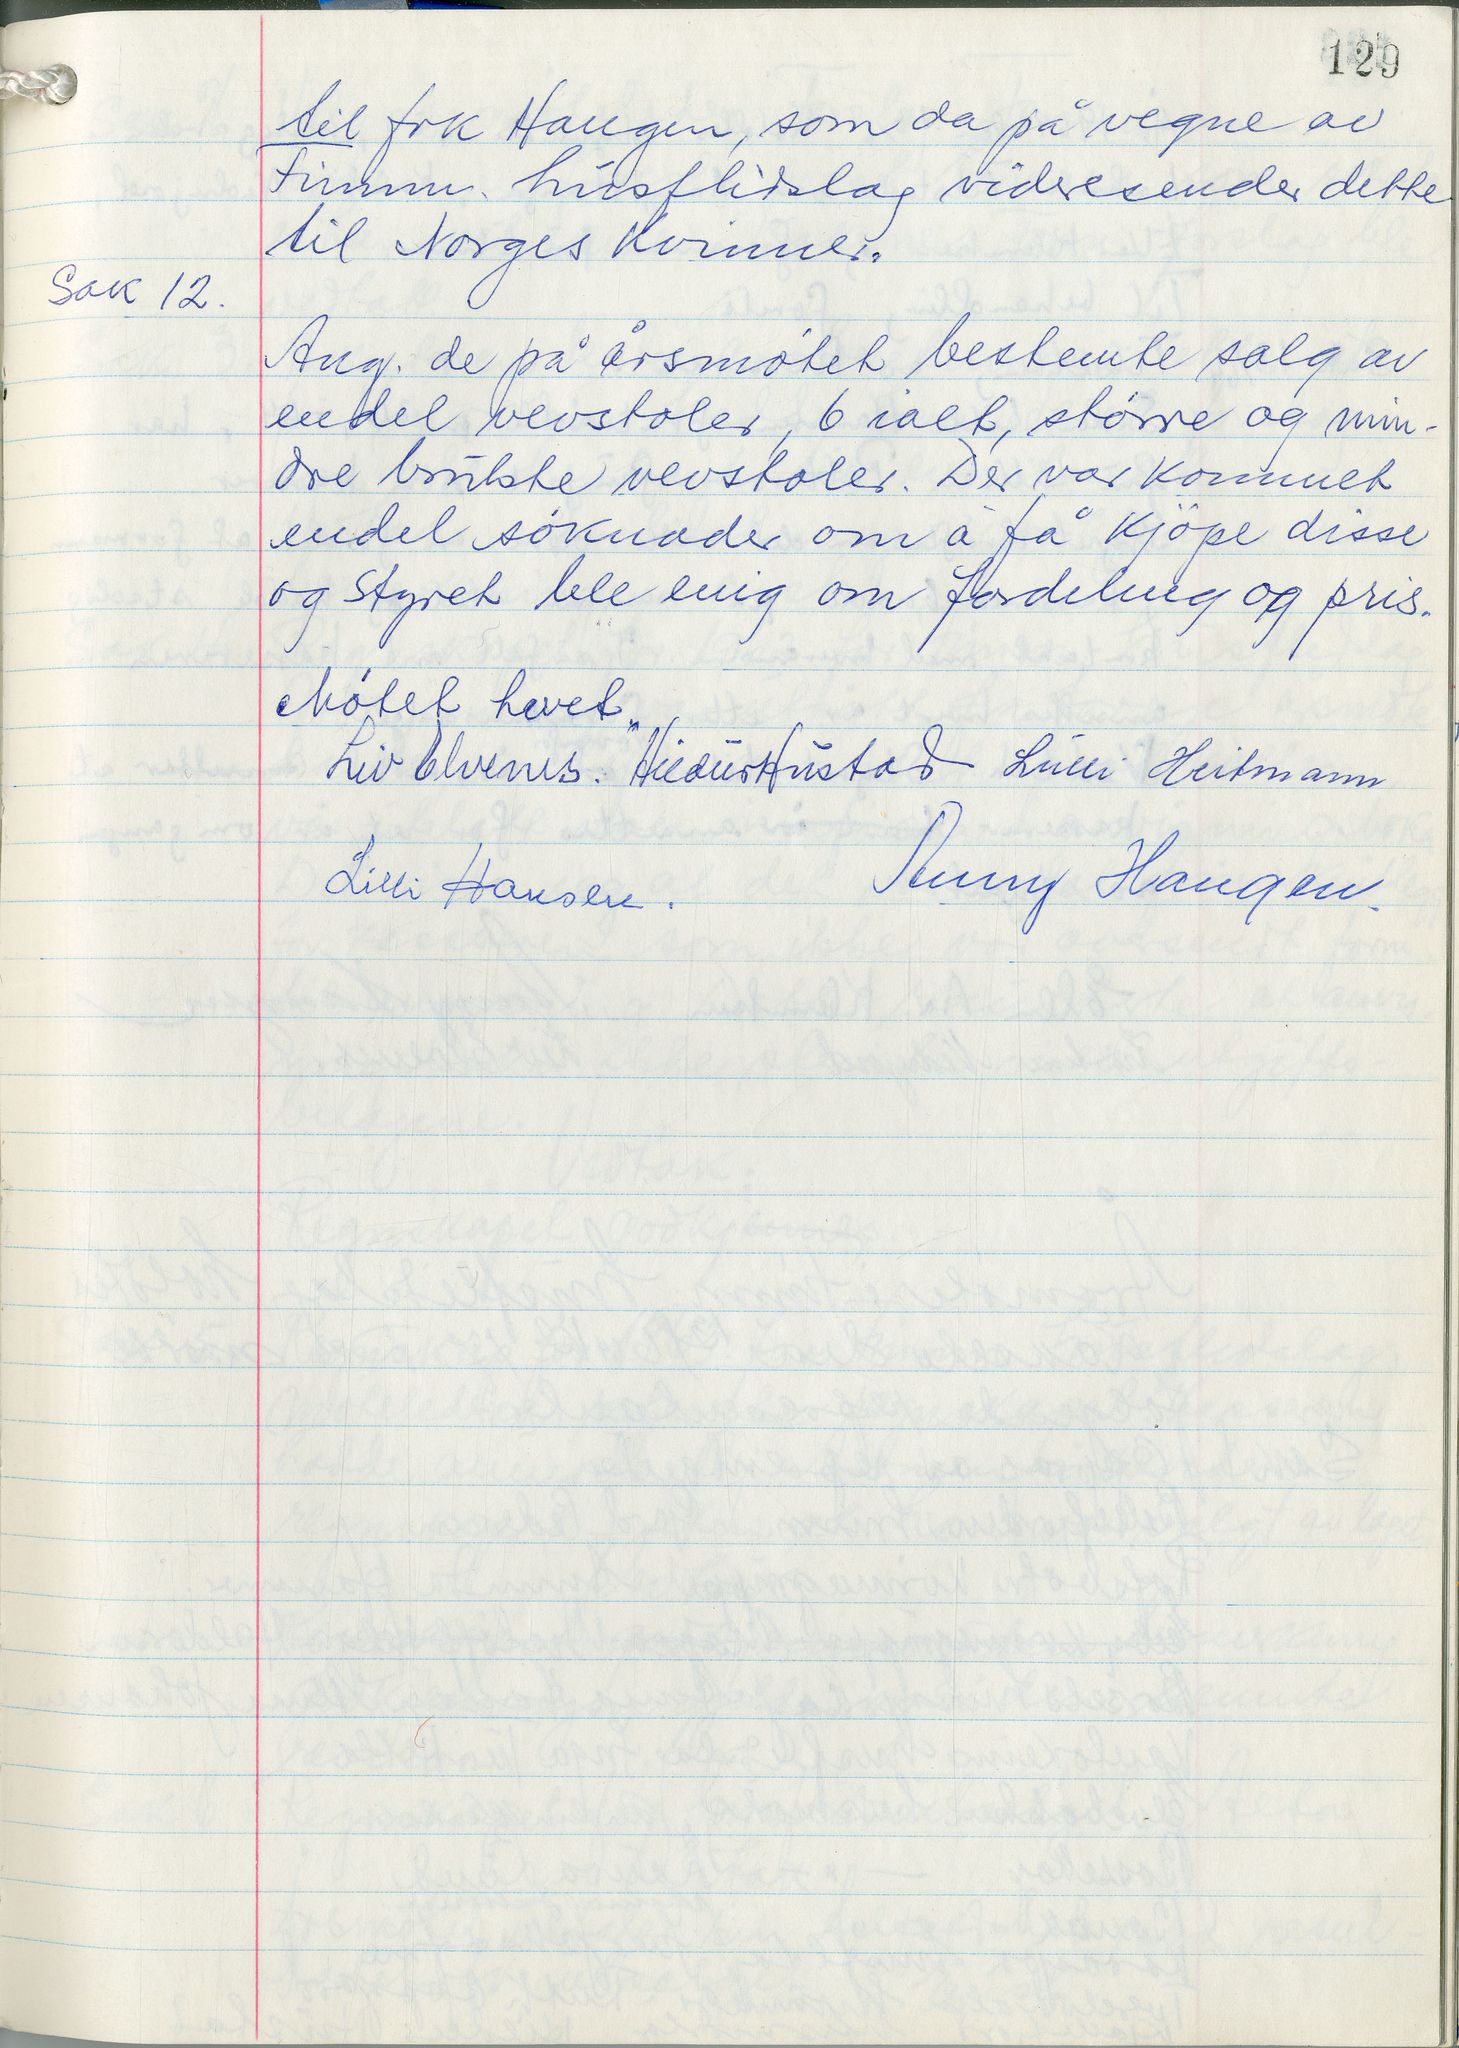 129
til frk Haugen, som da på vegne av
Finnm. husflidslag videresender dette
til Norges Kvinner.
Sak 12.
Ang. de på årsmøtet bestemte salg av
endel vevstoler, 6 ialt, større og min-
dre brukte vevstoler. Der var kommet
endel søknader om å få kjöpe disse
og styret ble enig om fordeling og pris.
Møtet hevet.
Liv Elvenes. Hildur Hustad Lulli Heitmann
Lilli Hansen. Anny Haugen.